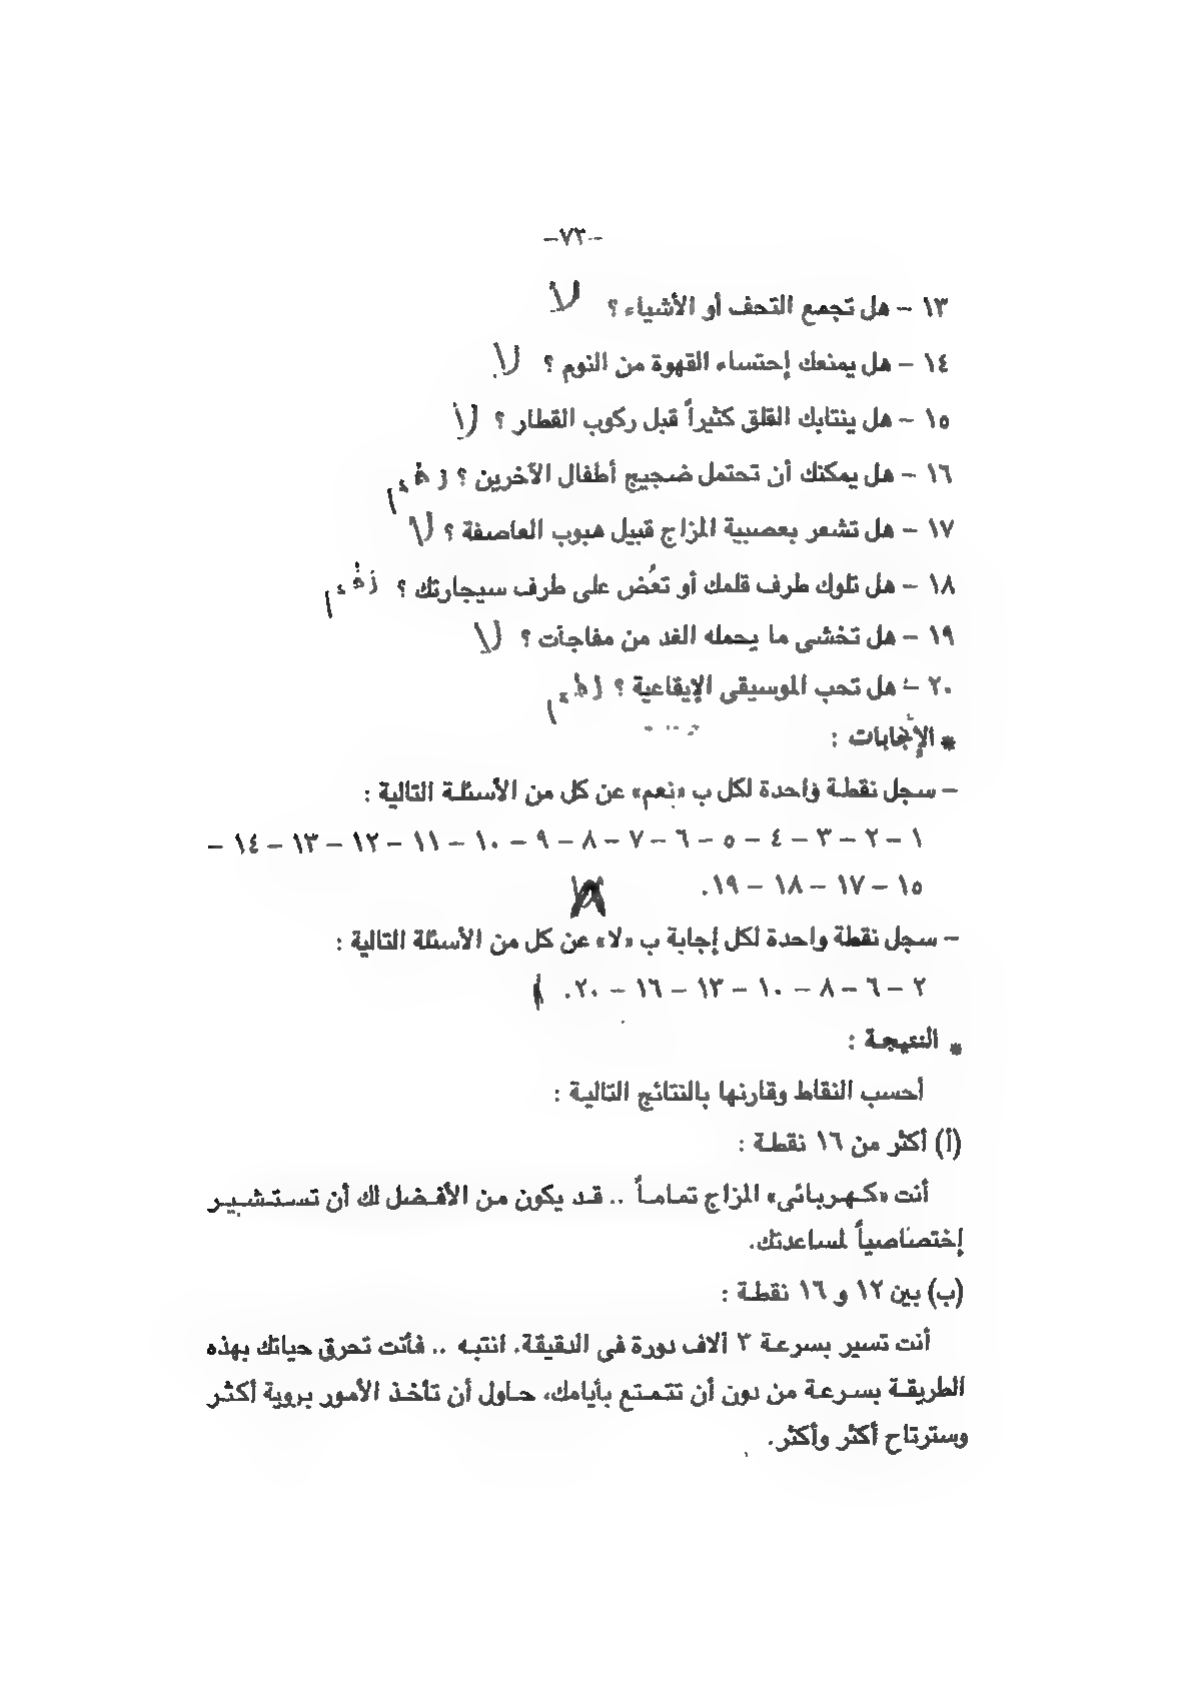 -٧٣-
١٣ - هل تجمع التحف أو الأشياء ؟ لا
١٤ - هل يمنعك إحتساء القهوة من النوم ؟ لا
١٥ - هل ينتابك القلق كثيراً قبل ركوب القطار ؟ لا
١٦ - هل يمكنك أن تحتمل ضجيج أطفال الآخرين ؟
١٧ - هل تشعر بعصبية المزاج قبيل هبوب العاصفة ؟ لا
١٨ - هل تلوك طرف قلمك أو تعُض على طرف سيجارتك ؟
١٩ - هل تخشى ما يحمله الغد من مفاجآت ؟ لا
٢٠ - هل تحب الموسيقى الإيقاعية ؟
* الإجابات :
- سجل نقطة واحدة لكل ب «نعم» عن كل من الأسئلة التالية :
١ - ٢ - ٣ - ٤ - ٥ - ٦ - ٧ - ٨ - ٩ - ١٠ - ١١ - ١٢ - ١٣ - ١٤ -
١٥ - ١٧ - ١٨ - ١٩.
- سجل نقطة واحدة لكل إجابة ب «لا» عن كل من الأسئلة التالية :
٢ - ٦ - ٨ - ١٠ - ١٣ - ١٦ - ٢٠.
* النتيجة :
أحسب النقاط وقارنها بالنتائج التالية :
(أ) أكثر من ١٦ نقطة :
أنت «كهربائى» المزاج تماماً .. قد يكون من الأفضل لك أن تستشير
إختصاصياً لمساعدتك.
(ب) بين ١٢ و ١٦ نقطة :
أنت تسير بسرعة ٣ آلاف دورة في الدقيقة. انتبه .. فأنت تحرق حياتك بهذه
الطريقة بسرعة من دون أن تتمتع بأيامك، حاول أن تأخذ الأمور بروية أكثر
وسترتاح أكثر وأكثر.